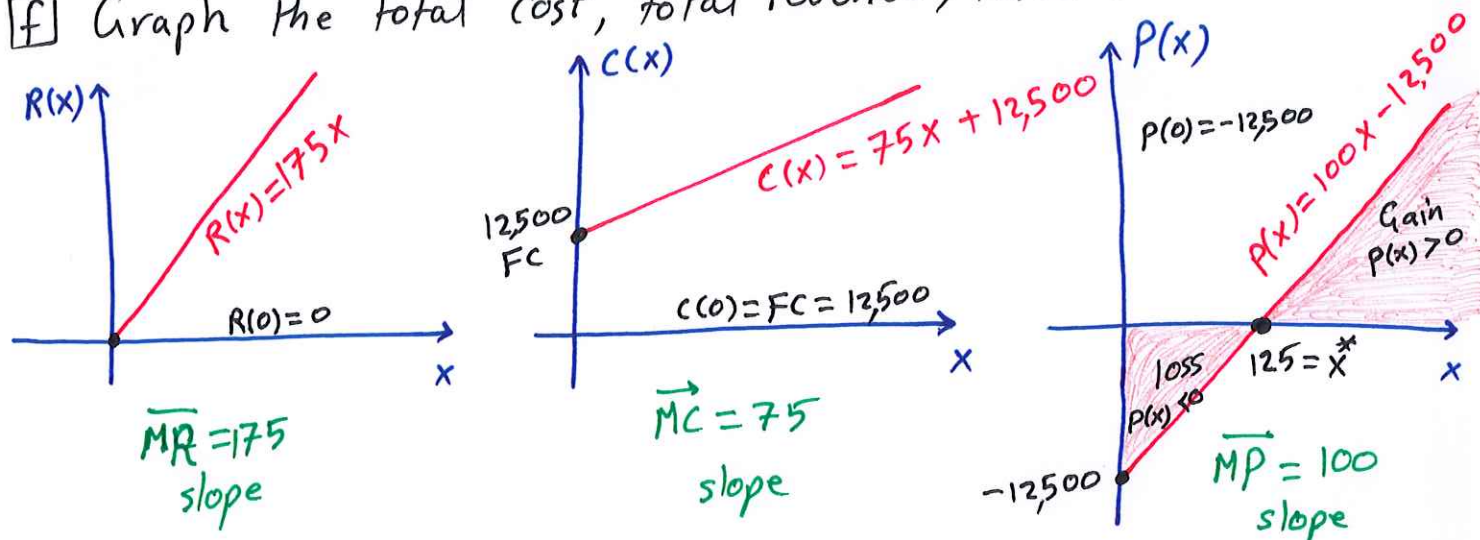 f Graph the total cost, total
R(x)
R(x)=175x
R(0)=0
x
MR=175
slope
C(x)
C(x)=75x+12,500
12,500
FC
C(0)=FC=12,500
x
MC=75
slope
P(x)
P(0)=-12,500
P(x)=100x-12,500
Gain
P(x)>0
loss
P(x)<0
125=x*
x
-12,500
MP=100
slope